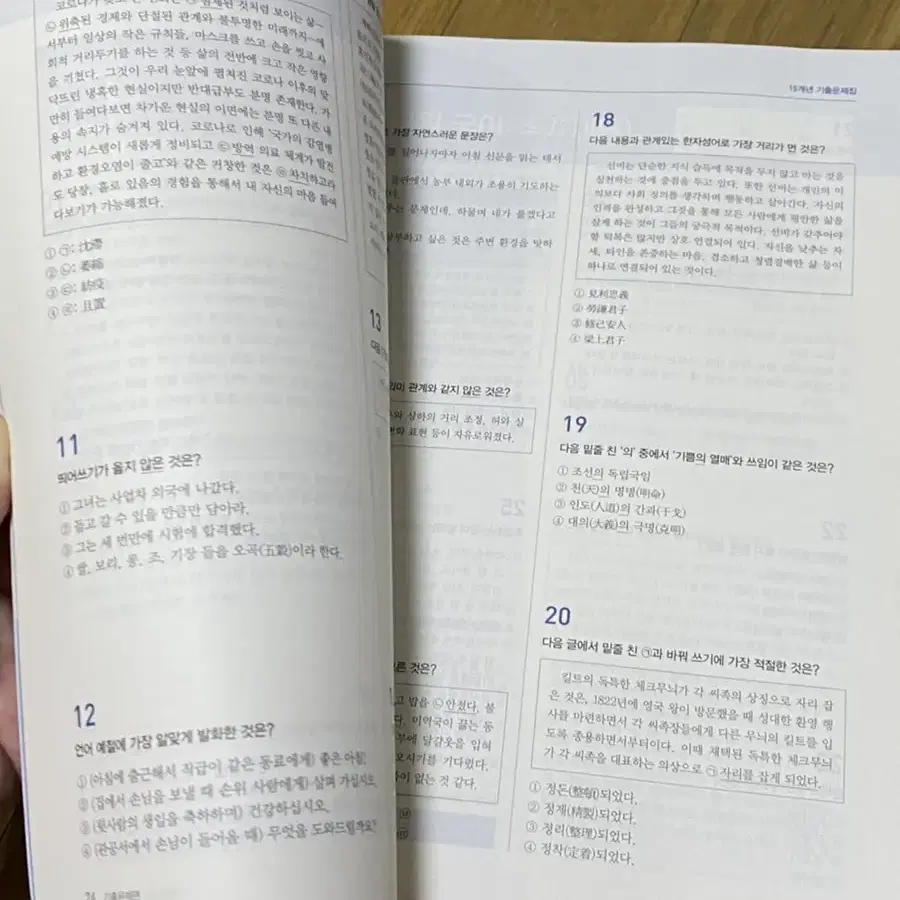 코로나가
것처럼 보이는 삶
㉡위축된 경제와 단절된 관계와 불투명한 미래까지―에
서부터 일상의 작은 규칙들, 마스크를 쓰고 손을 씻고 사
회적 거리두기를 하는 것 등 삶의 전반에 크고 작은 영향
을 끼쳤다. 그것이 우리 눈앞에 펼쳐진 코로나 이후의 맞
닥뜨린 냉혹한 현실이지만 반대급부도 분명 존재한다. 가
만히 들여다보면 차가운 현실의 이면에는 분명 또 다른 내
용의 속지가 숨겨져 있다. 코로나로 인해 '국가의 감염병
예방 시스템이 새롭게 정비되고 ㉢방역 의료 체계가 발전
하고 환경오염이 줄고'와 같은 거창한 것은 ㉣차치하고라
도 당장, 홀로 있음의 경험을 통해서 내 자신의 마음 들여
다보기가 가능해졌다.
① ㉠: 沈滯
② ㉡: 萎縮
③ ㉢: 紡疫
④ ㉣: 且置
11
띄어쓰기가 옳지 않은 것은?
① 그녀는 사업차 외국에 나갔다.
② 들고 갈 수 있을 만큼만 담아라.
③ 그는 세 번만에 시험에 합격했다.
④ 쌀, 보리, 콩, 조, 기장 들을 오곡(五穀)이라 한다.
12
언어 예절에 가장 알맞게 발화한 것은?
① (아침에 출근해서 직급이 같은 동료에게) 좋은 아침!
② (집에서 손님을 보낼 때 손위 사람에게) 살펴 가십시오.
③ (윗사람의 생일을 축하하며) 건강하십시오.
④ (관공서에서 손님이 들어올 때) 무엇을 도와드릴까요?
24 기출문제편
가장 자연스러운 문장은?
일어나자마자 아침 신문을 읽는 데서
들판에서 농부 내외가 조용히 기도하는
문제인데, 하물며 네가 풀겠다고
하고 싶은 것은 주변 환경을 탓하
13
의미 관계와 같지 않은 것은?
상하의 거리 조정, 허와 실
표현 등이 자유로워졌다.
25
것은?
밥을 ㉡안쳤다. 불
미역국이 끓는 동
달걀옷을 입혀
오시기를 기다렸다.
없는 것 같다.
15개년 기출문제집
18
다음 내용과 관계있는 한자성어로 가장 거리가 먼 것은?
선비는 단순한 지식 습득에 목적을 두지 않고 아는 것을
실천하는 것에 중점을 두고 있다. 또한 선비는 개인의 이
익보다 사회 정의를 생각하며 행동하고 살아간다. 자신의
인격을 완성하고 그것을 통해 모든 사람에게 평안한 삶을
살게 하는 것이 그들의 궁극적 목적이다. 선비가 갖추어야
할 덕목은 많지만 상호 연결되어 있다. 자신을 낮추는 자
세, 타인을 존중하는 마음, 검소하고 청렴결백한 삶 등이
하나로 연결되어 있는 것이다.
① 見利思義
② 勞謙君子
③ 修己安人
④ 梁上君子
19
다음 밑줄 친 '의' 중에서 '기쁨의 열매'와 쓰임이 같은 것은?
① 조선의 독립국임
② 천(天)의 명명(明命)
③ 인도(人道)의 간과(干戈)
④ 대의(大義)의 극명(克明)
22
20
다음 글에서 밑줄 친 ㉠과 바꿔 쓰기에 가장 적절한 것은?
킬트의 독특한 체크무늬가 각 씨족의 상징으로 자리 잡
은 것은, 1822년에 영국 왕이 방문했을 때 성대한 환영 행
사를 마련하면서 각 씨족장들에게 다른 무늬의 킬트를 입
도록 종용하면서부터이다. 이때 채택된 독특한 체크무늬
가 각 씨족을 대표하는 의상으로 ㉠자리를 잡게 되었다.
① 정돈(整頓)되었다.
② 정제(精製)되었다.
③ 정리(整理)되었다.
④ 정착(定着)되었다.